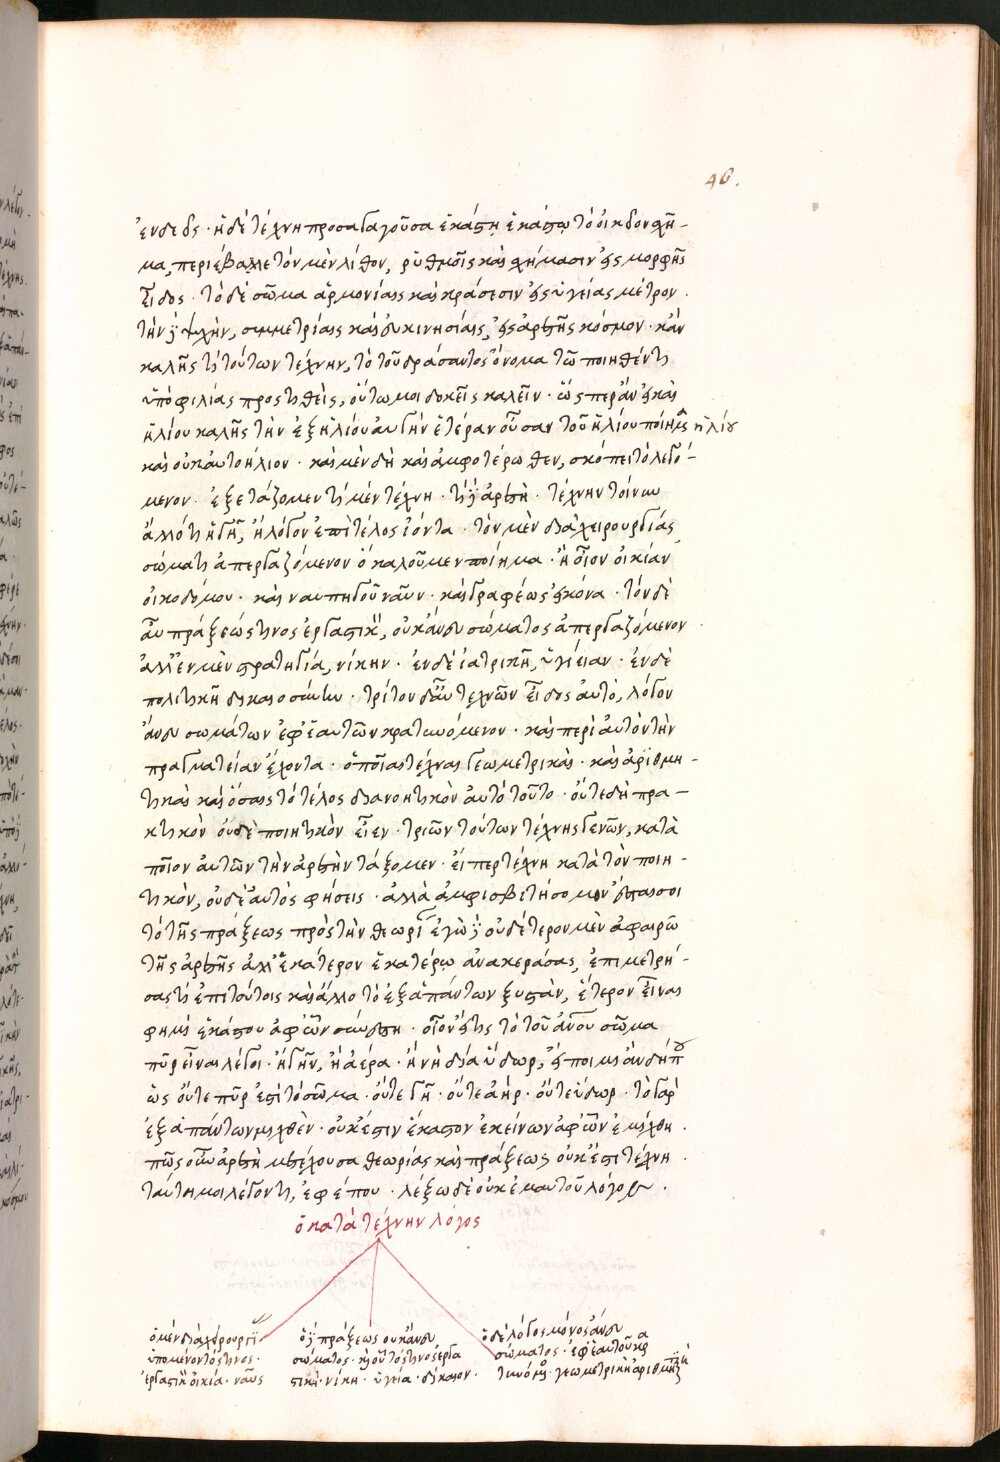 46.
ἐνδεὲς · ἡ δὲ τέχνη προσαγαγοῦσα ἑκάστη ἑκάστῳ τὸ οἰκεῖον σχῆ-
μα, περιέβαλλε τὸν μὲν λίθον, ῥυθμοῖς καὶ σχήμασιν εἰς μορφῆς
εἶδος · τὸ δὲ σῶμα ἁρμονίαις καὶ κράσεσιν εἰς ὑγείας μέτρον .
τὴν δὲ ψυχὴν, συμμετρίαις καὶ εὐκινησίαις, εἰς ἀρετῆς κόσμον · κἂν
καλῇς τι τούτων τέχνην, τὸ τοῦ δράσαντος ὄνομα τῶ ποιηθέντι
ὑπὸ φιλίας προστιθεὶς, οὕτω μοι δοκεῖς καλεῖν · ὥσπερ ἂν εἰ καὶ
ἥλιον καλῇς τὴν ἐξ ἡλίου αὐγὴν ἑτέραν οὖσαν τοῦ ἡλίου ποίημα ἡλίου
καὶ οὐκ αὐτοήλιον · καὶ μὲν δὴ καὶ ἀμφοτέρωθεν, σκόπει τὸ λεγό-
μενον · ἐξετάζομεν τί μὲν τέχνη · τί δὲ ἀρετή · τέχνην τοίνυν
ἄλλό τι ἡγῇ, ἢ λόγον ἐπὶ τέλος ἰόντα · τὸν μὲν διὰ χειρουργίας
σώματι ἀπεργαζόμενον ὃ καλοῦμεν ποίημα · ἢ οἷον οἰκίαν
οἰκοδόμου · καὶ ναυπηγοῦ ναῦν · καὶ γραφέως εἰκόνα · τὸν δὲ
αὖ πράξεώς τινος ἐργαστικὸν, οὐκ ἄνευ σώματος ἀπεργαζόμενον .
ἀλλ' ἐν μὲν στρατηγία, νίκην · ἐν δὲ ἰατρικῆ, ὑγίειαν · ἐν δὲ
πολιτικῆ δικαιοσύνην · τρίτον δ' αὖ τεχνῶν εἶδος αὐτὸ, λόγον
ἄνευ σωμάτων ἐφ' ἑαυτῶν κρατυνόμενον · καὶ περὶ αὐτὸν τὴν
πραγματείαν ἔχοντα · ὁποῖαι τέχναι γεωμετρικαὶ · καὶ ἀριθμη-
τικαὶ καὶ ὅσαις τὸ τέλος διανοητικὸν αὐτὸ τοῦτο · οὔτε δὴ πρα-
κτικὸν οὐδὲ ποιητικὸν εἶεν · τριῶν τούτων τέχνης γενῶν, κατὰ
ποῖον αὐτῶν τὴν ἀρετὴν τάξομεν · εἴπερ τέχνη κατὰ τὸν ποιη-
τικὸν, οὐδὲ αὐτὸς φήσεις · ἀλλὰ ἀμφισβιτήσομεν ἔσται σοι
τὸ τῆς πράξεως πρὸς τὴν θεωρίαν ἐγὼ δὲ οὐδέτερον μὲν ἀφαιρῶ
τῆς ἀρετῆς ἀλλ' ἑκάτερον ἑκατέρῳ ἀνακεράσας, ἐπιμετρή-
σας τι ἐπὶ τούτοις καὶ ἄλλο τὸ ἐξ ἁπάντων ξυστὰν, ἕτερον εἶναι
φημὶ ἑκάστου ἀφ' ὧν συνέστη · οἷον εἴ τις τὸ τοῦ ἀνου σῶμα
πῦρ εἶναι λέγοι · ἢ γῆν, ἢ ἀέρα · ἢ νὴ δία ὕδωρ,
ὡς οὔτε πῦρ ἐστὶ τὸ σῶμα · οὔτε γῆ · οὔτε ἀὴρ · οὔτε ὕδωρ · τὸ γὰρ
ἐξ ἁπάντων μιχθὲν · οὐκ ἔστιν ἕκαστον ἐκείνων ἀφ' ὧν ἐμίχθη .
πῶς οὖν ἀρετὴ μετέχουσα θεωρίας καὶ πράξεως οὐκ ἔστι τέχνη .
ταύτῃ μοι λέγοντι, ἐφέπου · λέξω δὲ οὐκ ἐμαυτοῦ λόγον .
ὁ κατὰ τέχνην λόγος
ὁ μὲν διὰ χειρουργίας
ὑπομένοντός τινος ·
ἐργαστικὸν οἰκία · ναῦς
ὁ δὲ πράξεως οὐκ ἄνευ
σώματος · καὶ οὗτός τινος ἐργα
στικὸν · νίκη · ὑγεία · δίκαιον ·
ὁ δὲ λόγος μόνος ἄνευ
σώματος · ἐφ' ἑαυτοῦ κρα
τυνόμενος · γεωμετρικὴ ἀριθμητικὴ